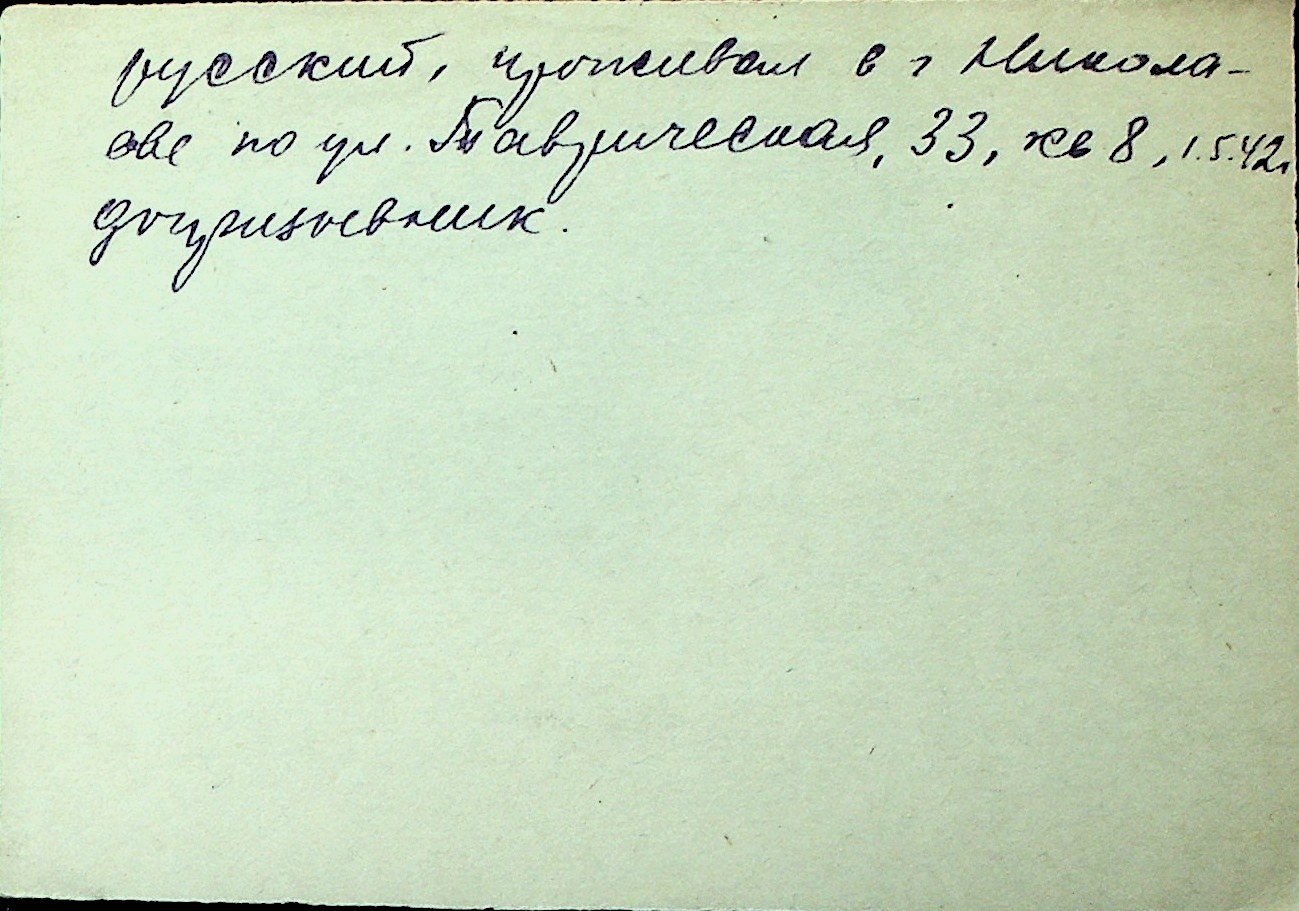 русский, проживал в г Никола-
еве по ул. Таврическая, 33, кв 8, 1.5.42г
допризывник.